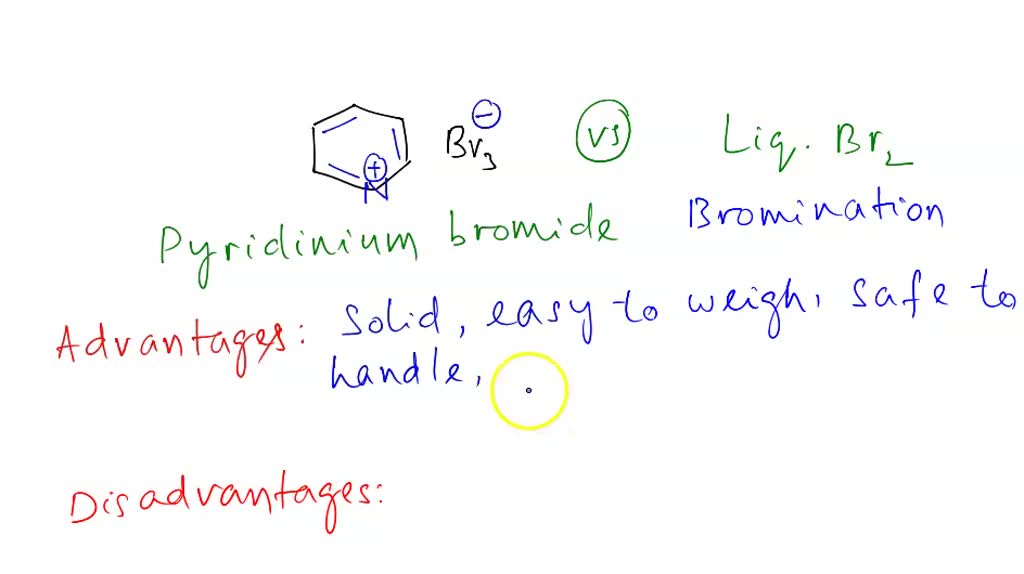 Br3 ⊖ vs Liq. Br2
⊕
N
Pyridinium bromide Bromination
Advantages: Solid, easy to weigh, safe to
handle,
Disadvantages: